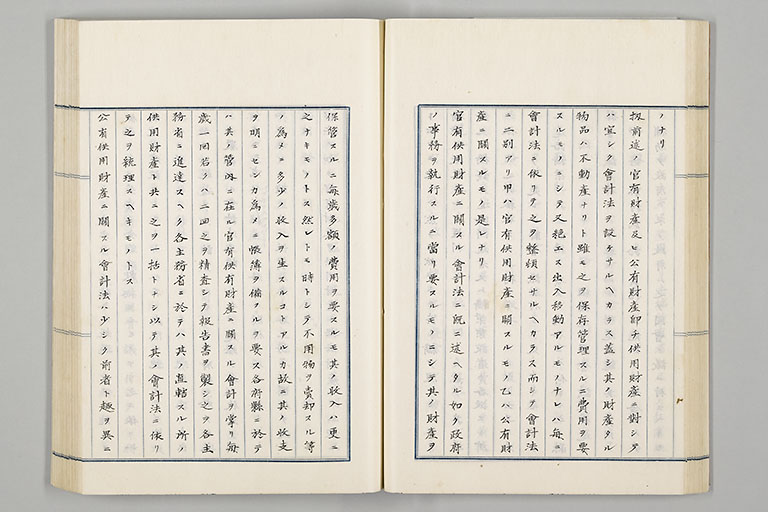 ノナリ
扨前述ノ官有財産及ヒ公有財産即チ供用財産ニ對シテ
ハ宜シク會計法ヲ設ケサルヘカラス蓋シ其ノ財産タル
物品ハ不動産ナリト雖モ之ヲ保存管理スルニ費用ヲ要
スルモノニシテ又絶エス出入移動アルモノナレハ毎ニ
會計法ニ依リテ之ヲ整頓セサルヘカラス而シテ會計法
ニ二別アリ甲ハ官有供用財産ニ關スルモノ乙ハ公有財
産ニ關スルモノ是レナリ
官有供用財産ニ關スル會計法ハ既ニ述ヘタル如ク政府
ノ事務ヲ執行スルニ當リ要スルモノニシテ其ノ財産ヲ
保管スルニ毎歳多額ノ費用ヲ要スルモ其ノ收入ハ更ニ
之ナキモノトス然レトモ時トシテ不用物ヲ賣却スル等
ノ為メニ多少ノ收入ヲ生スルコトアルカ故ニ其ノ收支
ヲ明ニセンカ為メニ帳簿ヲ備フルヲ要ス各府縣ニ於テ
ハ其ノ管内ニ在ル官有供有財産ニ關スル會計ヲ掌リ毎
歳一回若クハ二回之ヲ精査シテ報告書ヲ製シ之ヲ各主
務省ニ進達スヘク各主務省ニ於テハ其ノ直轄スル所ノ
供用財産ト共ニ之ヲ一括トナシ以テ其ノ會計法ニ依リ
テ之ヲ統理スヘキモノトス
公有供用財産ニ關スル會計法ハ少シク前者ト趣ヲ異ニ